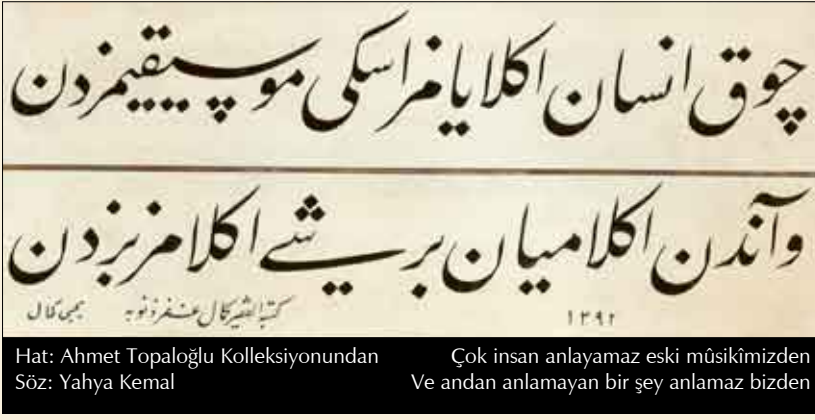 چوق انسان اكلایامز اسكی موسیقیمزدن
وآندن اكلامیان بر شی اكلامز بزدن
١٣٩٢
كتبه الفقیر كمال غفر ذنوبه
یحیی كمال
Hat: Ahmet Topaloğlu Kolleksiyonundan
Söz: Yahya Kemal
Çok insan anlayamaz eski mûsikîmizden
Ve andan anlamayan bir şey anlamaz bizden